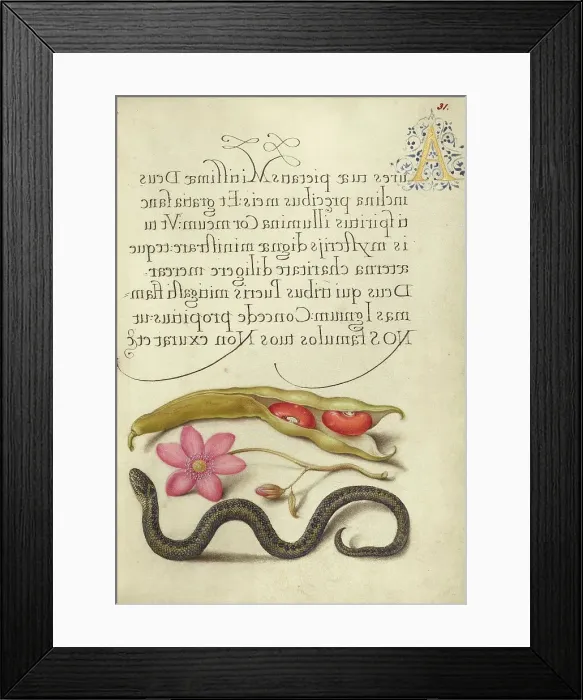 31.
Aures tuæ pietatis Mitissimæ Deus
inclina pręcibus meis: Et gratia sanc
ti spiritus illumina Cor meum: Vt tu
is mysterijs dignæ ministrare: teque
æterna charitate diligere merear.
Deus qui tribus Pueris mitigasti flam-
mas Ignium: Concede propitius: ut
NOS famulos tuos Non exurat etc